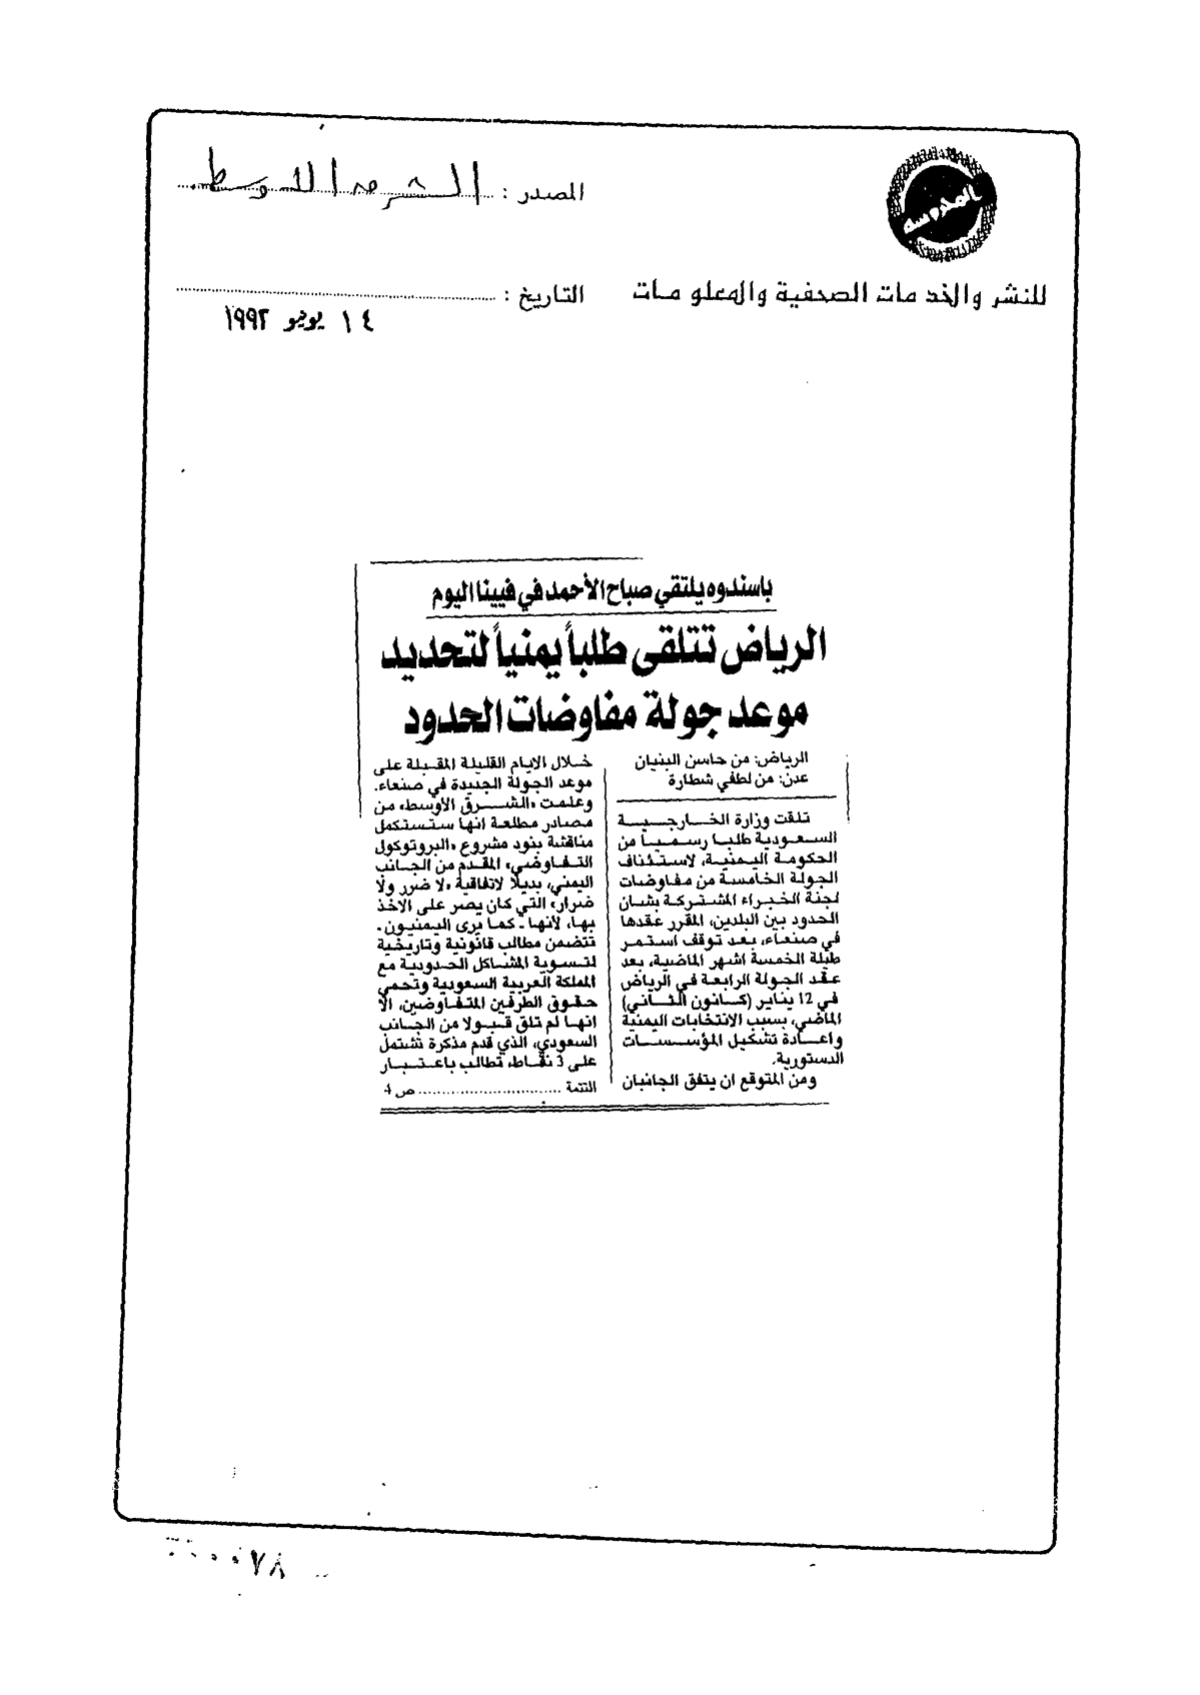 المصدر : الشرق الاوسط
المحروسة
للنشر والخدمات الصحفية والمعلومات
التاريخ :
١٤ يونيو ١٩٩٣
باسندوه يلتقي صباح الأحمد في فيينا اليوم
الرياض تتلقى طلباً يمنياً لتحديد
موعد جولة مفاوضات الحدود
الرياض: من جاسن البنيان
عدن: من لطفي شطارة
تلقت وزارة الخارجية
السعودية طلبا رسمياً من
الحكومة اليمنية، لاستئناف
الجولة الخامسة من مفاوضات
لجنة الخبراء المشتركة بشان
الحدود بين البلدين، المقرر عقدها
في صنعاء، بعد توقف استمر
طيلة الخمسة اشهر الماضية، بعد
عقد الجولة الرابعة في الرياض
في 12 يناير (كانون الثاني)
الماضي، بسبب الانتخابات اليمنية
واعادة تشكيل المؤسسات
الدستورية.
ومن المتوقع ان يتفق الجانبان
خلال الايام القليلة المقبلة على
موعد الجولة الجديدة في صنعاء.
وعلمت «الشرق الاوسط» من
مصادر مطلعة انها ستستكمل
مناقشة بنود مشروع «البروتوكول
التفاوضي» المقدم من الجانب
اليمني، بديلا لاتفاقية «لا ضرر ولا
ضرار» التي كان يصر على الاخذ
بها، لأنها - كما يرى اليمنيون -
تتضمن مطالب قانونية وتاريخية
لتسوية المشاكل الحدودية مع
المملكة العربية السعودية وتحمي
حقوق الطرفين المتفاوضين، الا
انها لم تلق قبولا من الجانب
السعودي، الذي قدم مذكرة تشتمل
على 3 نقاط، تطالب باعتبار
التتمة ............................ ص 4